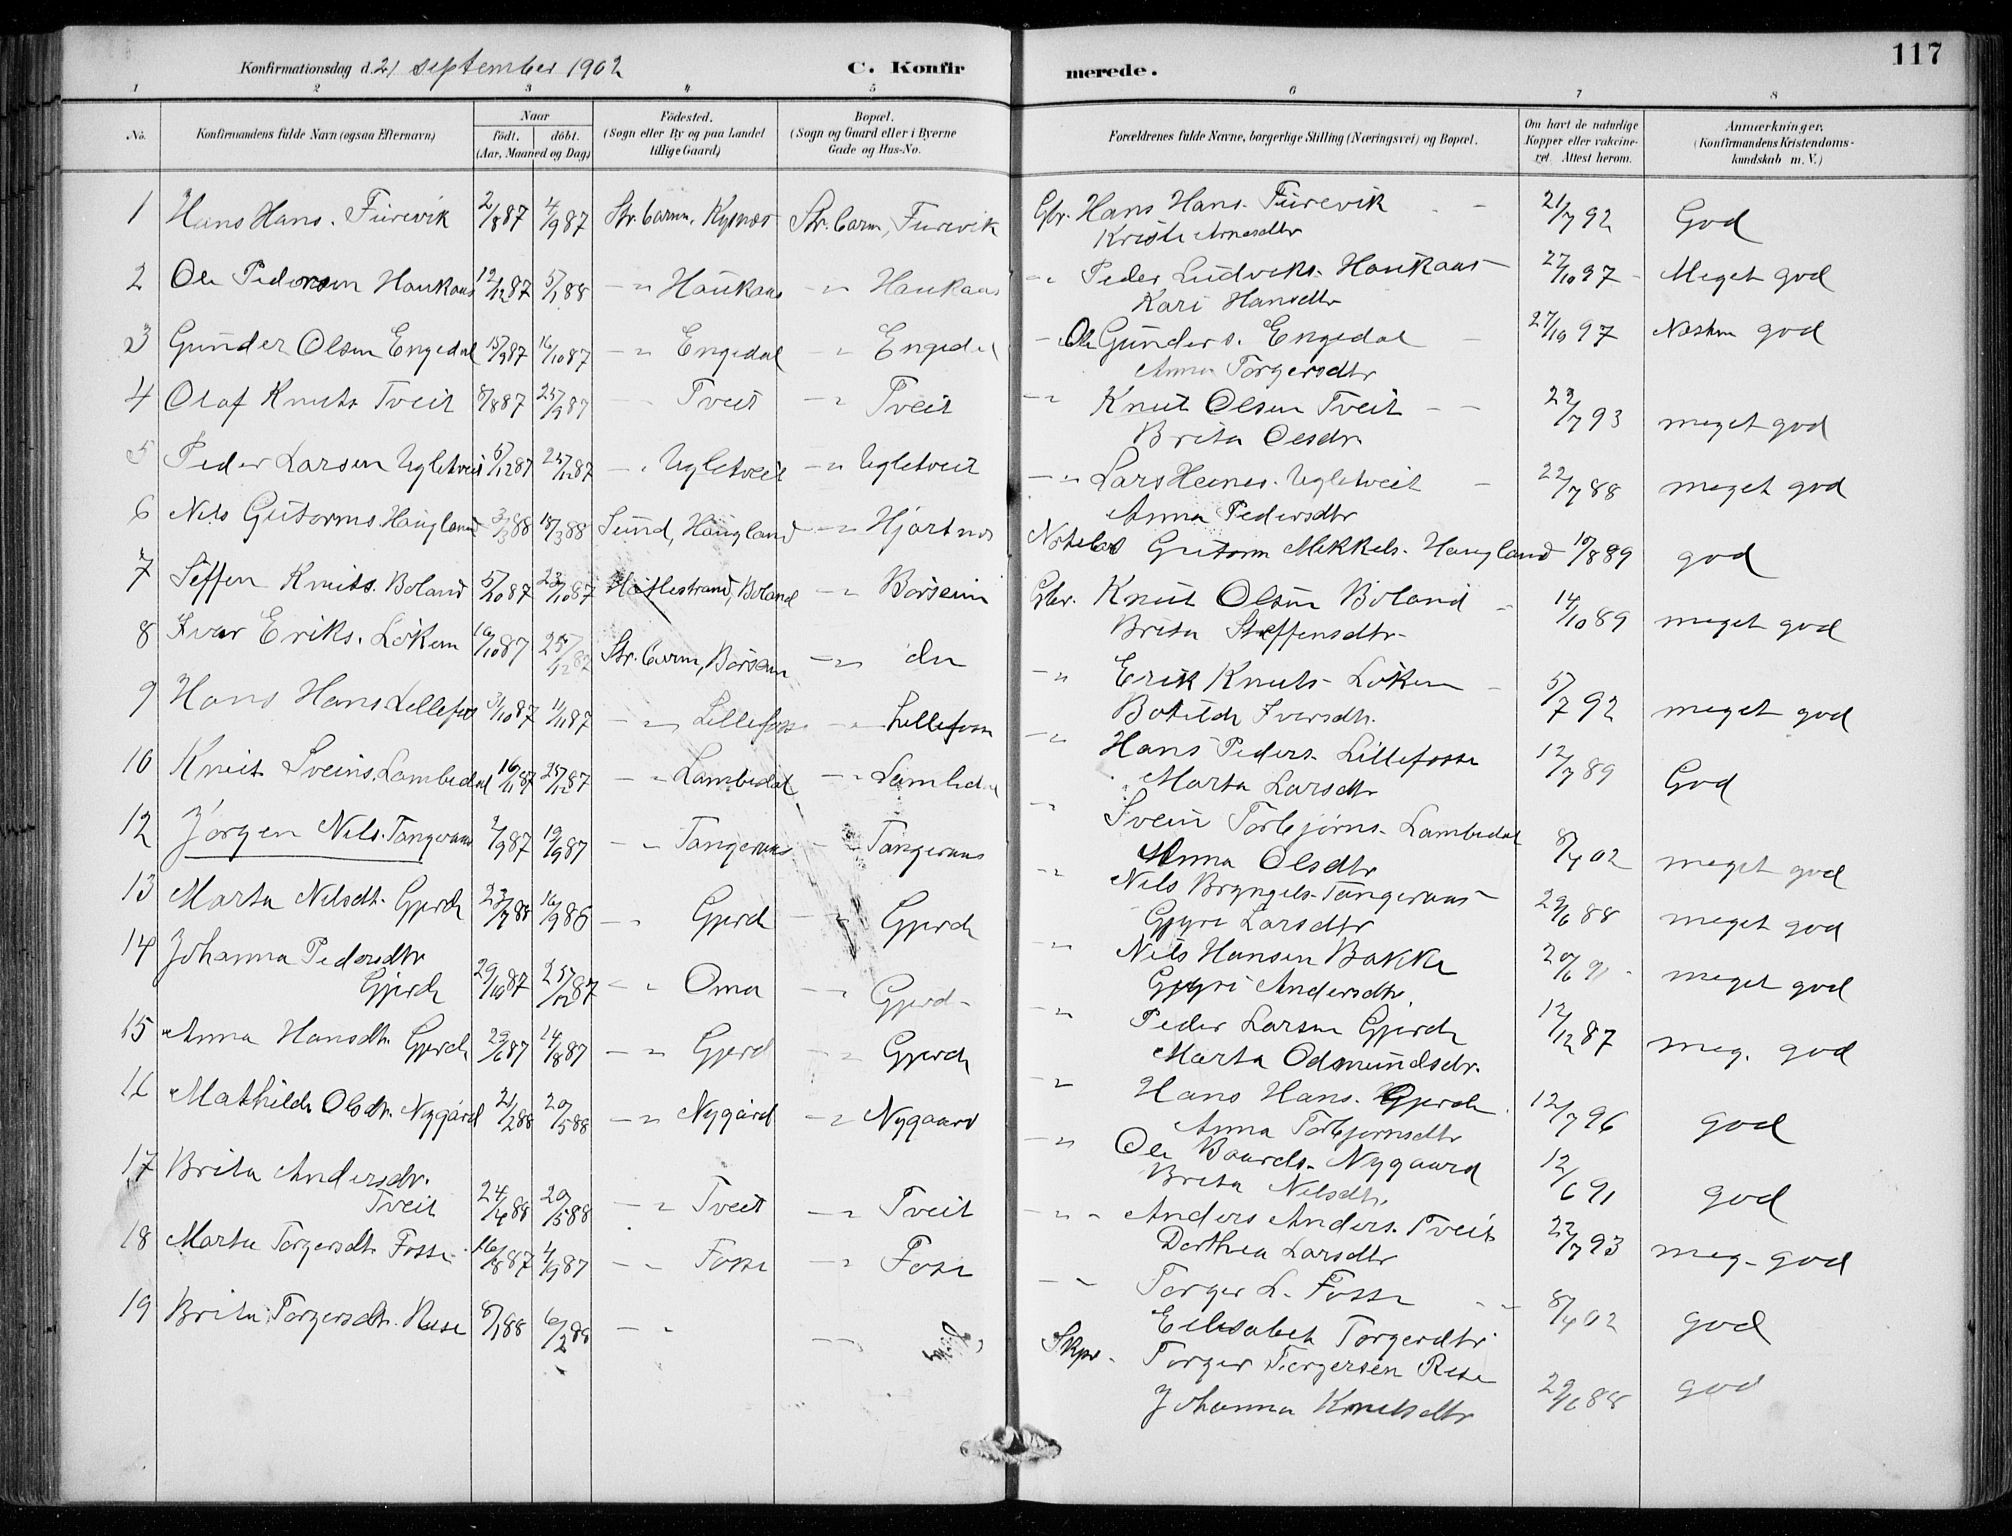 117
Konfirmationsdag d. 21 september 1902 C. Konfirmerede.
1 2 3 4 5 6 7 8
No. Konfirmandens fulde Navn (ogsaa Efternavn) Naar födt. döbt. (Aar, Maaned og Dag) Födested. (Sogn eller By og paa Landet tillige Gaard) Bopæl. (Sogn og Gaard eller i Byerne Gade og Hus-No. Forældrenes fulde Navne, borgerlige Stilling (Næringsvei) og Bopæl. Om havt de naturlige Kopper eller vakcineret. Attest herom. Anmærkninger. (Konfirmandens Kristendomskundskab m. V.)
1 Hans Hans. Furevik 2/8 87 4/9 87 Str.barm, Kysnæs Str.barm, Furevik Gbr. Hans Hans. Furevik 21/7 92 God
Kristi Arnesdtr
2 Ole Pedersen Haukaas 12/12 87 5/1 88 -"- Haukaas -"- Haukaas -"- Peder Ludviks. Haukaas 27/10 97 Meget god
Kari Hansdtr
3 Gunder Olsen Engedal 15/9 87 16/10 87 -"- Engedal -"- Engedal -"- Ole Gunders. Engedal 27/10 97 Næsten god
Anna Torgersdtr
4 Olaf Knuts Tveit 8/8 87 25/9 87 -"- Tveit -"- Tveit -"- Knut Olsen Tveit 22/7 93 meget god
Brita Olsdr.
5 Peder Larsen Ugletveit 5/12 87 25/12 87 -"- Ugletveit -"- Ugletveit -"- Lars Heines. Ugletveit 22/7 88 meget god
Anna Pedersdtr
6 Nils Gutorms Haugland 3/3 88 18/3 88 Sund, Haugland -"- Hjartnes Gutorm Mikkels. Haugland 10/8 89 god
7 Seffen Knuts. Boland 5/10 87 23/10 87 Boland -"- Børseim Gbr. Knut Olsen Boland 14/10 89 meget god
Brita Steffensdtr
8 Ivar Eriks. Løken 16/10 87 25/12 87 Str.barm, Børseim -"- do -"- Erik Knuts- Løken 5/7 92 meget god
Botilde Iversdtr.
9 Hans Hans Lillefoss 31/10 87 11/11 87 -"- Lillefoss -"- Lillefosse -"- Hans Peders. Lillefosse 12/7 89 God
Marta Larsdtr
10 Knut Sveins. Lambedal 16/11 87 25/12 87 -"- Lambedal -"- Lambedal -"- Svein Torbjørns. Lambedal 8/4 02 meget god
Anna Olsdtr
12 Jørgen Nils. Tangeraas 2/9 87 19/9 87 -"- Tangeraas -"- Tangeraas -"- Nils Bryngels. Tangeraas 29/6 88 meget god
Gjyri Larsdtr
13 Marta Nilsdt. Gjerde 23/7 88 16/9 86 -"- Gjerd -"- Gjerde -"- Nils Hansen Bakke 20/6 91 meget god
Gjyri Andersdtr.
14 Johanna Pedersdtr
Gjerde 29/10 87 25/12 87 -"- Oma -"- Gjerd -"- Peder Larsen Gjerde 12/12 87 meg. god
Marta Odmundsdr.
15 Anna Hansdtr. Gjerde 29/6 87 14/8 87 -"- Gjerd -"- Gjerde -"- Hans Hans. Gjerde 12/7 96 god
Anna Torbjørnsdtr
16 Mathilde Olsdtr. Nygård 21/2 88 20/5 88 -"- Nygård -"- Nygaard -"- Ole Baards. Nygaard 12/6 91 god
Brita Nilsdtr.
17 Brita Andersdr.
Tveit 24/4 88 20/5 88 -"- Tveit -"- Tveit -"- Anders Anders. Tveit 22/7 93 meg. god
Dorthea Larsdtr
18 Marta Torgersdt. Fosse 16/8 87 4/9 87 -"- Fosse -"- Fosse -"- Torger L. Fosse 8/4 02 god
Elisabet Torgerdtr
19 Brita Torgersdtr. Rese 8/1 88 6/2 88 -"- Skpr. Torger Torgersen Rese 29/6 88 god
Johanna Knutsdtr